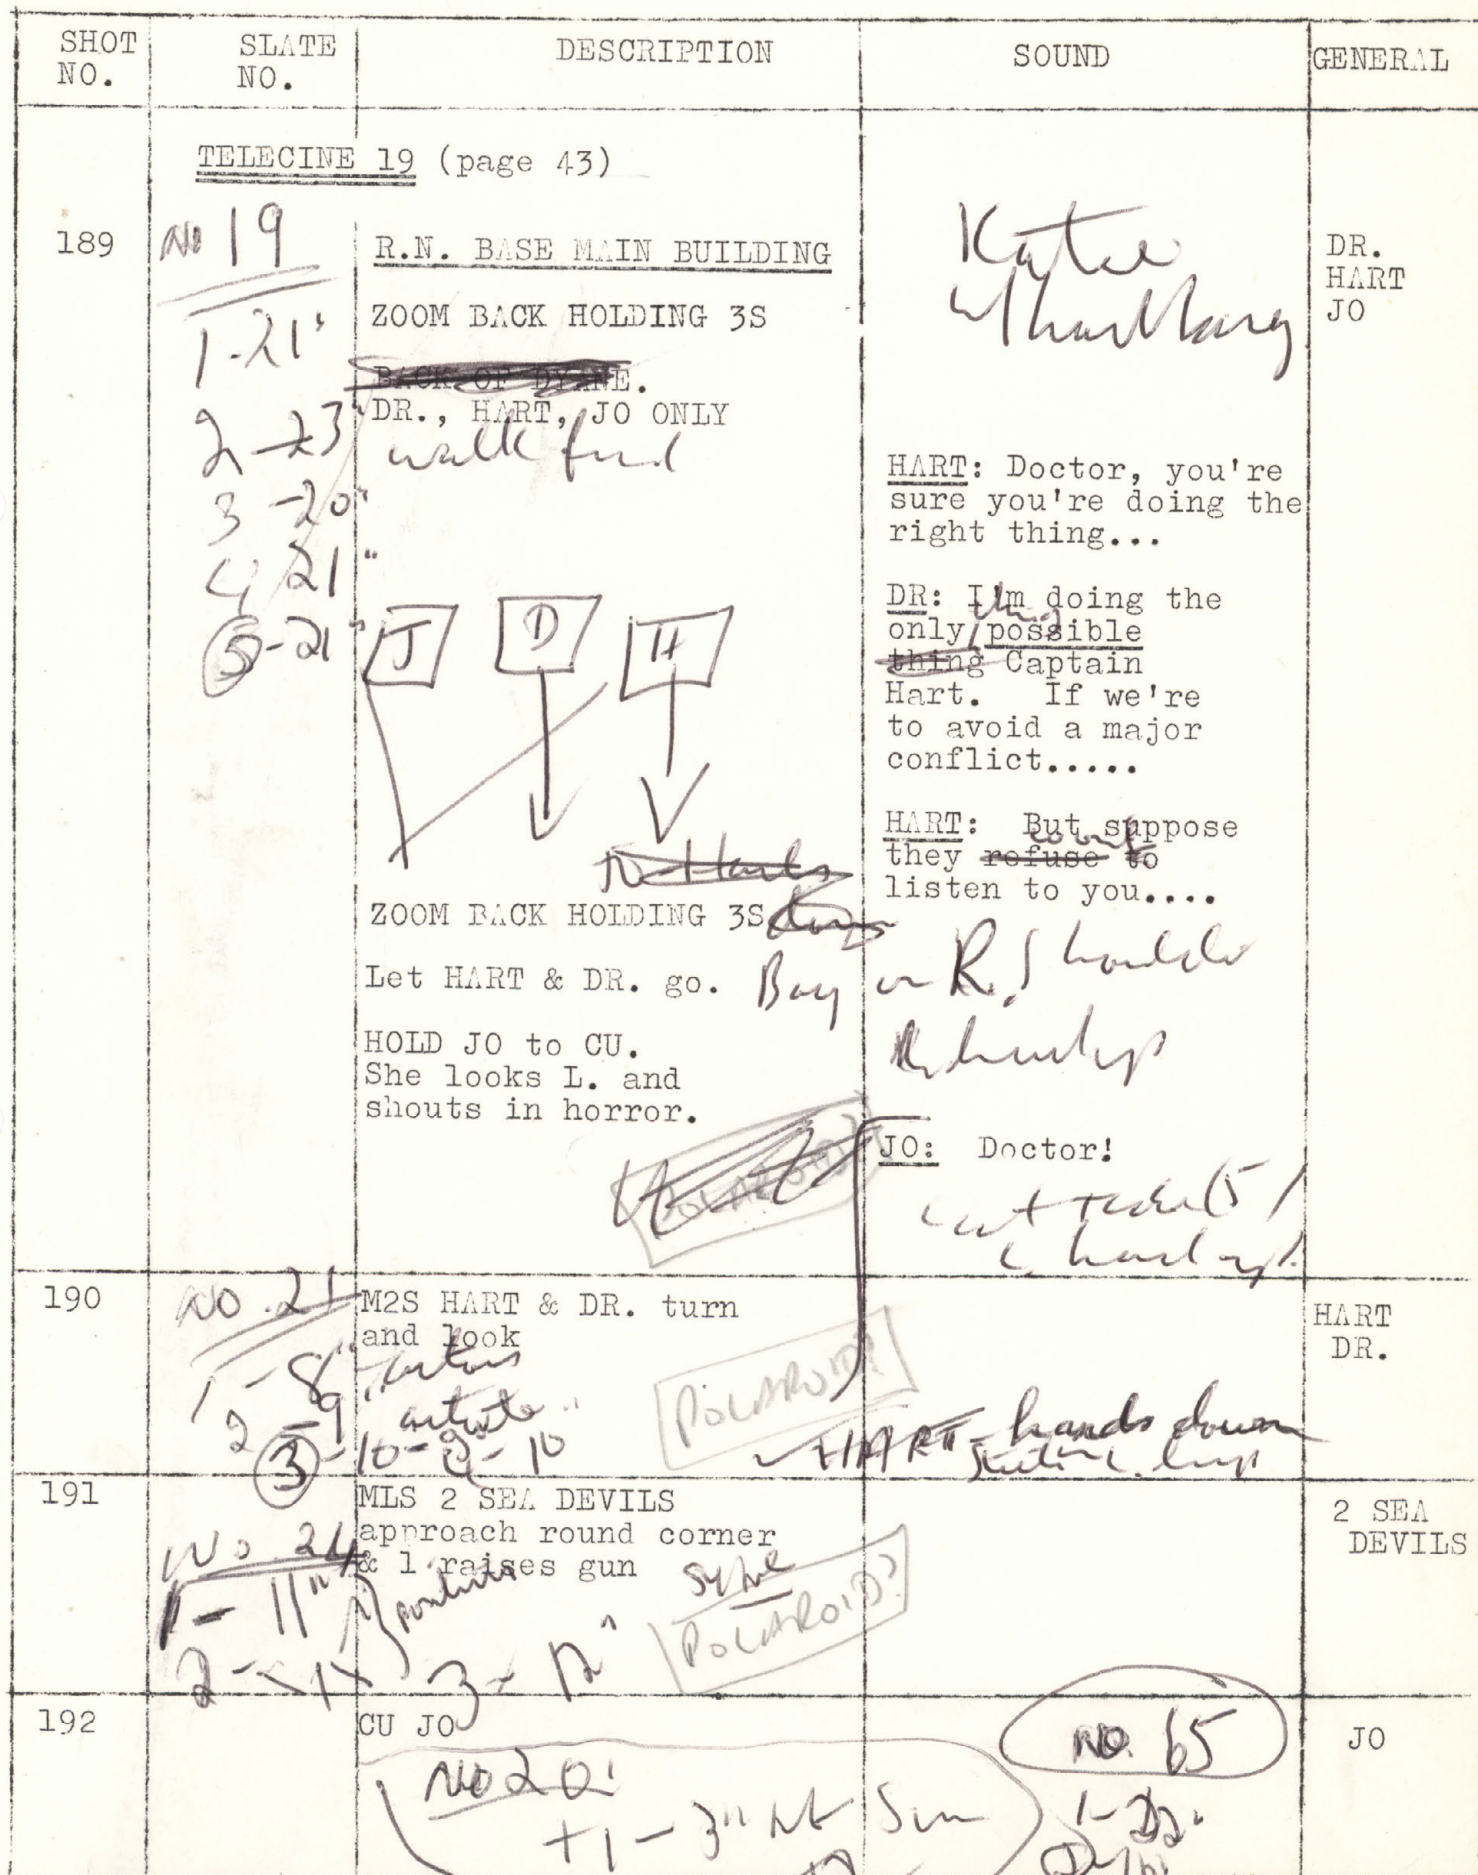 SHOT NO.
SLATE NO.
DESCRIPTION
SOUND
GENERAL
TELECINE 19 (page 43)
189
NO 19
1-21"
2-23"
3-20"
4 21"
5-21"
R.N. BASE MAIN BUILDING
ZOOM BACK HOLDING 3S
BACK OF DYANE.
DR., HART, JO ONLY
walk fwd
J D H
ZOOM BACK HOLDING 3S
Let HART & DR. go.
HOLD JO to CU.
She looks L. and
shouts in horror.
POLAROID?
Katie
HART: Doctor, you're
sure you're doing the
right thing...
DR: I'm doing the
only thing possible
thing Captain
Hart. If we're
to avoid a major
conflict.....
HART: But suppose
they refuse to
won't
listen to you....
Bag on R. Shoulder
JO: Doctor!
DR.
HART
JO
190
NO. 21
1-8"
2-9
3-10-9-10
M2S HART & DR. turn
and look
POLAROID?
HART - hands down
HART
DR.
191
No. 24
1-11"
2-
3- 12"
MLS 2 SEA DEVILS
approach round corner
& 1 raises gun
POLAROID?
2 SEA
DEVILS
192
CU JO
NO 20
+1-3"
NO. 65
JO